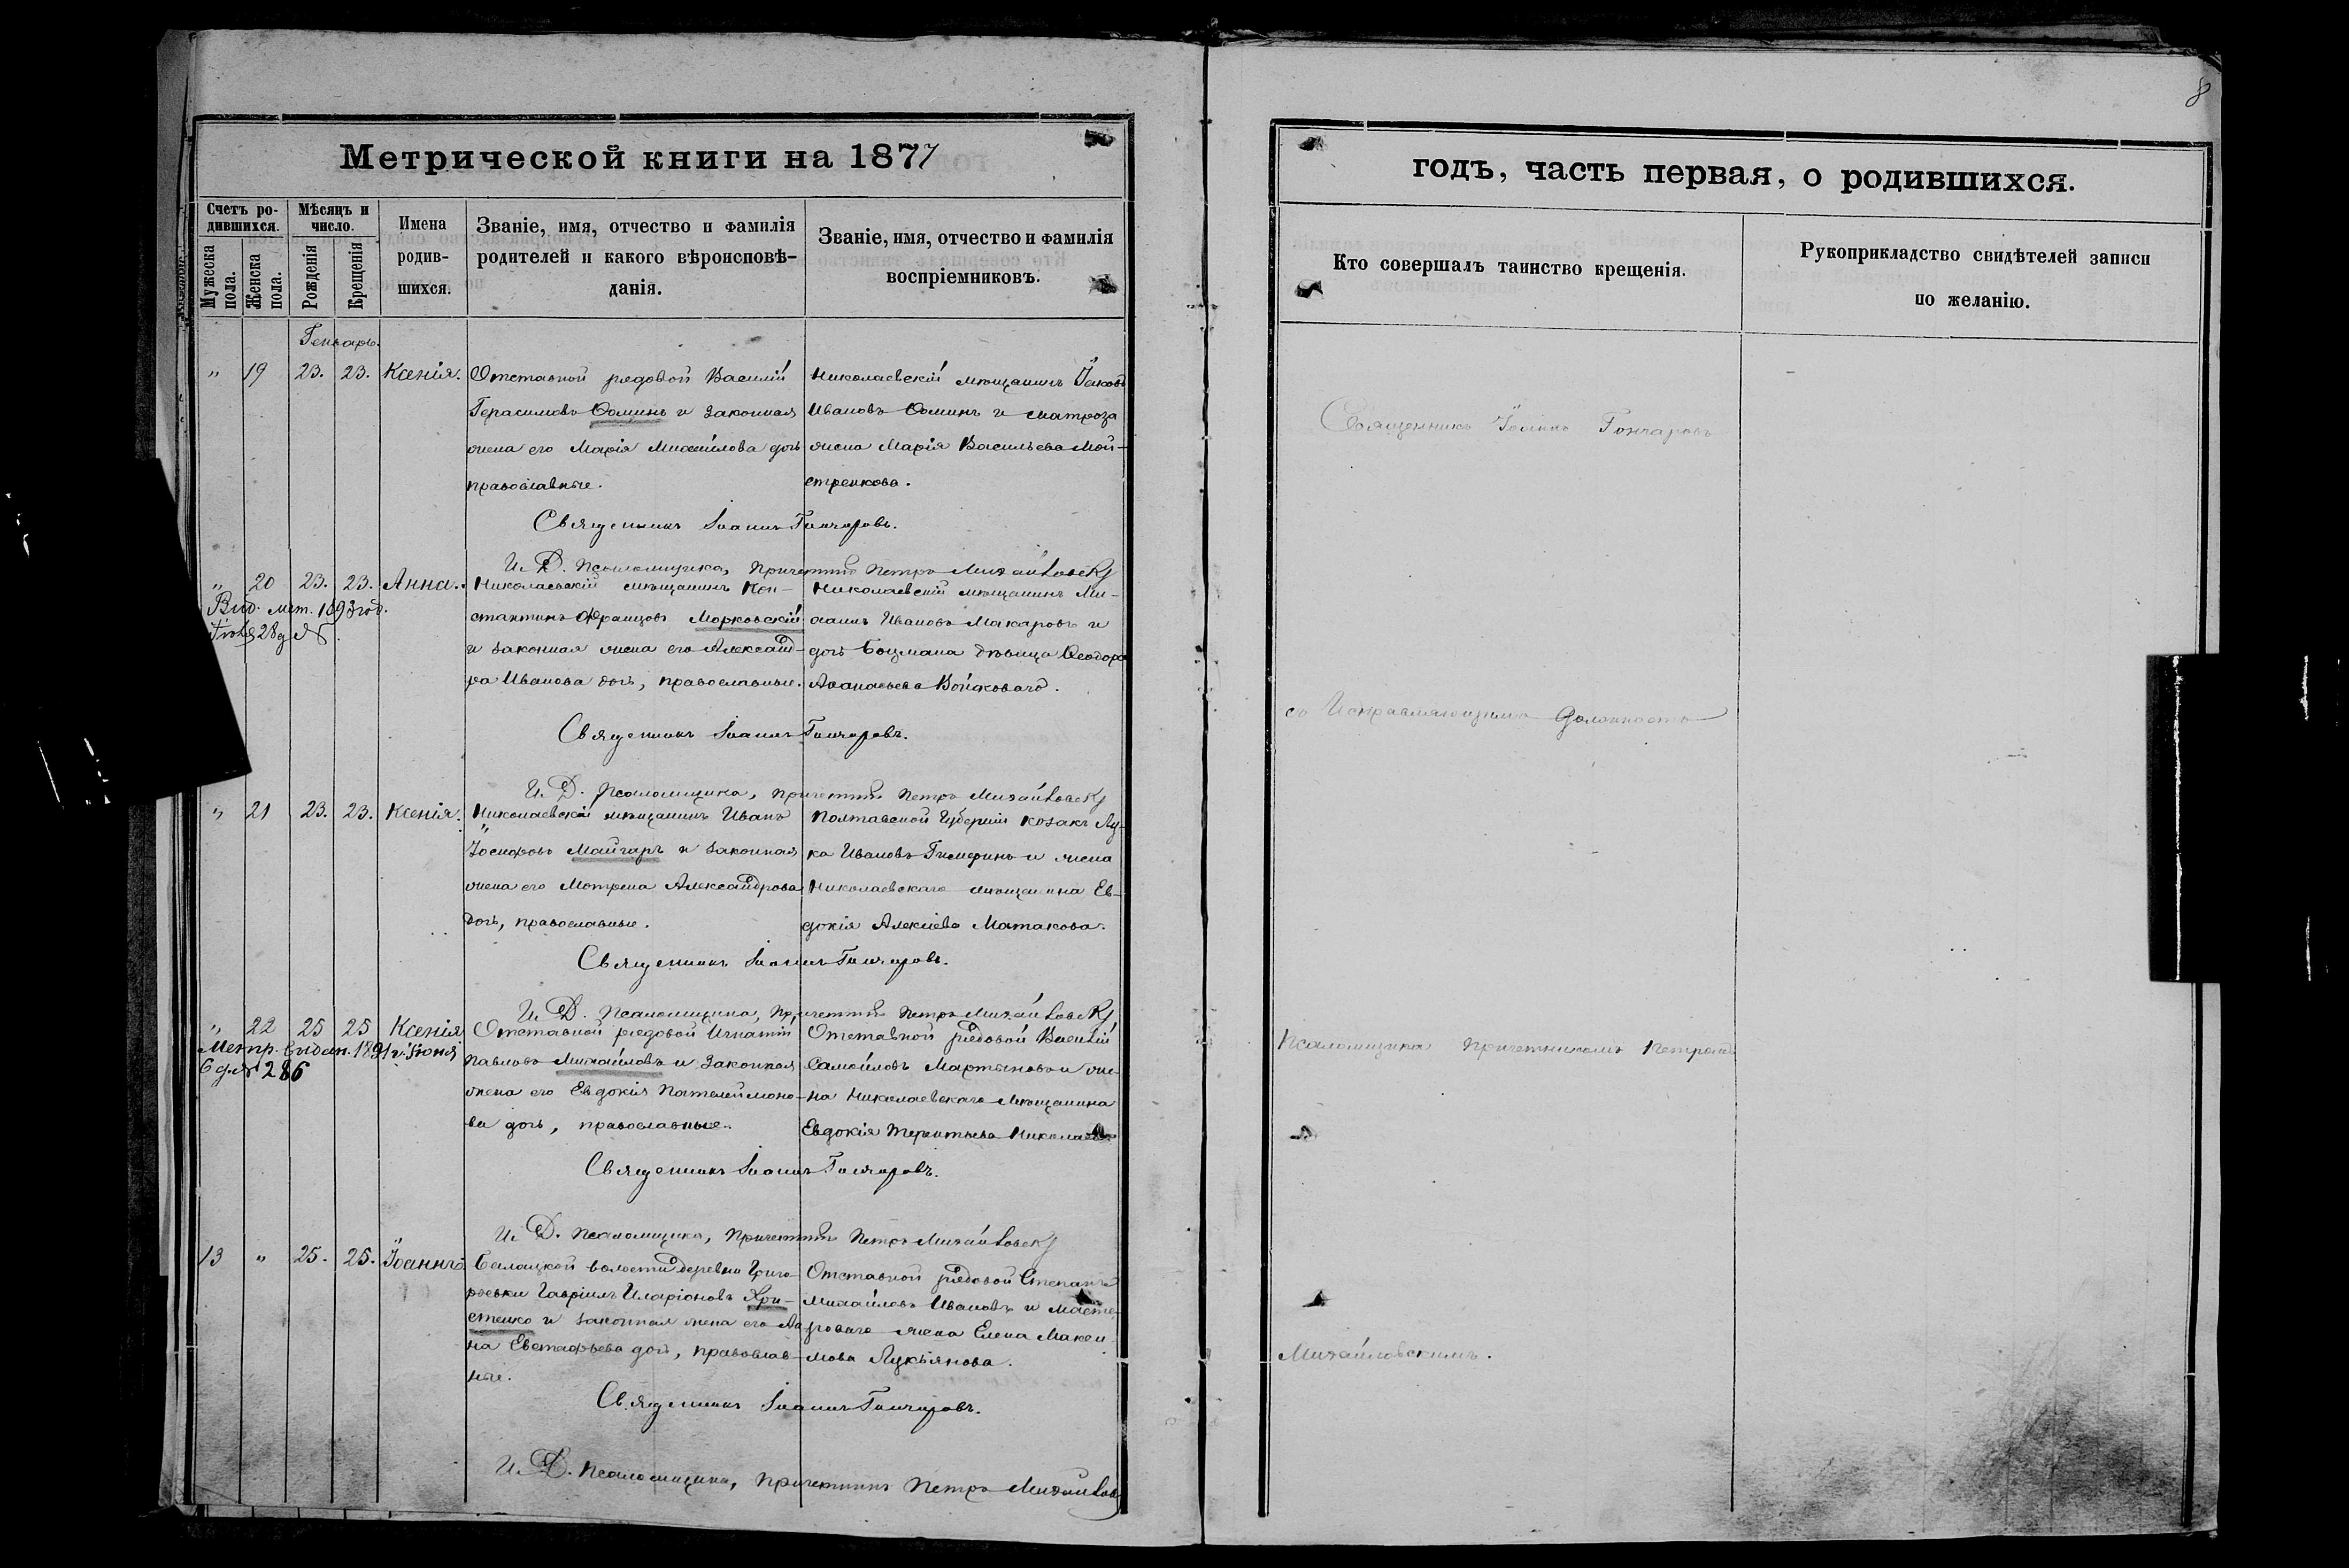 8
Метрической книги на 1877
Счетъ родившихся.
Мѣсяцъ и число.
Имена родившихся.
Званіе, имя, отчество и фамилія родителей и какого вѣроисповѣданія.
Званіе, имя, отчество и фамилія воспріемниковъ.
Мужеска пола.
Женска пола.
Рожденія
Крещенія
Генварь.
" 19 23. 23. Ксенія.
Отставной рядовой Василій
Герасимовъ Ѳоминъ и законная
жена его Марія Михайлова дочь
православные.
Николаевскій мѣщанинъ Іаковъ
Ивановъ Ѳоминъ и матроза
жена Марія Васильева Мой-
стренкова.
Священникъ Іоаннъ Гончаровъ.
И. Д. Псаломщика, Причетникъ Петръ Михайловскій
" 20 23. 23. Анна.
Вид. мет. 1893 год.
Николаевскій мѣщанинъ Кон-
стантинъ Францовъ Морковскій
и законная жена его Александ-
ра Иванова дочь, православные.
Николаевскій мѣщанинъ Ми-
хаилъ Ивановъ Макаровъ и
дочь Боцмана дѣвица Ѳеодора
Аѳанасьева Войковаго.
Священникъ Іоаннъ Гончаровъ.
И. Д. Псаломщика, Причетникъ Петръ Михайловскій
" 21 23. 23. Ксенія.
Николаевскій мѣщанинъ Иванъ
Іосифовъ Майгаръ и законная
жена его Мотрена Александрова
дочь, православные.
Полтавской Губерніи козакъ Лу-
ка Ивановъ и жена
Николаевскаго мѣщанина Ев-
докія Алексіева Матакова.
Священникъ Іоаннъ Гончаровъ.
И. Д. Псаломщика, Причетникъ Петръ Михайловскій
" 22 25 25 Ксенія
Метр. видан. 1891 г. Іюня
6 д. № 286
Отставной рядовой Игнатій
Павловъ Михайловъ и законная
жена его Евдокія Пателеймоно-
ва дочь, православные.
Отставной рядовой Василій
Самойловъ Мартыновъ и же-
на Николаевскаго мѣщанина
Евдокія Терентьева
Священникъ Іоаннъ Гончаровъ.
И. Д. Псаломщика, Причетникъ Петръ Михайловскій
13 " 25. 25. Іоаннъ
волости деревни Григо-
рьевки Гавріилъ Иларіоновъ Хри-
стенко и законная жена его Ан
на Евстафьева дочь, православ-
ные.
Отставной рядовой Степанъ
Михайловъ Ивановъ и масте-
роваго жена Елена Макси
мова Лукьянова.
Священникъ Іоаннъ Гончаровъ.
И. Д. Псаломщика, Причетникъ Петръ Михайлов
годъ, часть первая, о родившихся.
Кто совершалъ таинство крещенія.
Рукоприкладство свидѣтелей записи по желанію.
Священникъ Іоаннъ Гончаровъ
съ Исправляющимъ Должность
Псаломщика Причетникомъ Петромъ
Михайловскимъ.